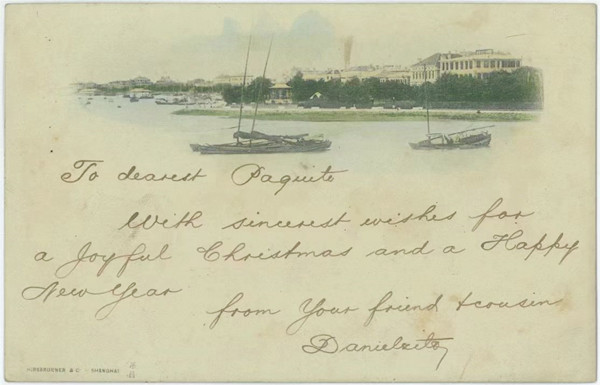 To dearest Paquito
With sincerest wishes for
a Joyful Christmas and a Happy
New Year
from Your friend & cousin
Danielcito
KIRNBRUNNER & Co SHANGHAI